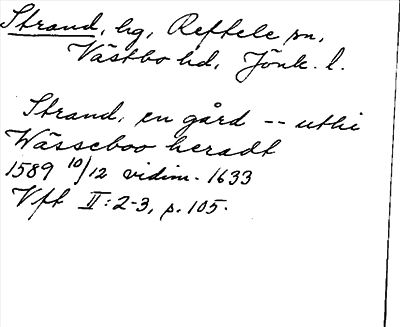 Strand, hg, Reftele sn,
Västbo hd, Jönk. l.
Strand, en gård -- uthi
Wässeboo heradt
1589 10/12 vidim. 1633
Vft II:2-3, p. 105.